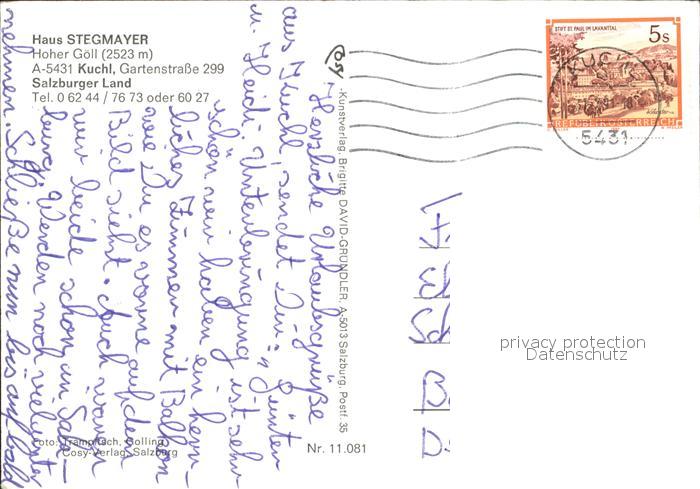 Haus STEGMAYER
Hoher Göll (2523 m)
A-5431 Kuchl, Gartenstraße 299
Salzburger Land
Tel. 0 62 44 / 76 73 oder 60 27
Cosy
-Kunstverlag, Brigitte DAVID-GRÜNDLER, A-5013 Salzburg, Postf. 35
STIFT ST. PAUL IM LAVANTTAL
5s
REPUBLIK ÖSTERREICH
KUCHL
5431
Herzliche Urlaubsgrüße
aus Kuchl, sendet Dir
u. Heidi. Unterbringung ist sehr
schön wir haben ein herr-
liches Zimmer mit Balkon
wie Du es vorne auf dem
Bild siehst. Auch waren
wir beide schon in Salz-
burg. Werden noch viel unter
nehmen. Schließe nun bis auf bald
privacy protection
Datenschutz
Foto: Trampitsch, Golling
Cosy-Verlag, Salzburg
Nr. 11.081